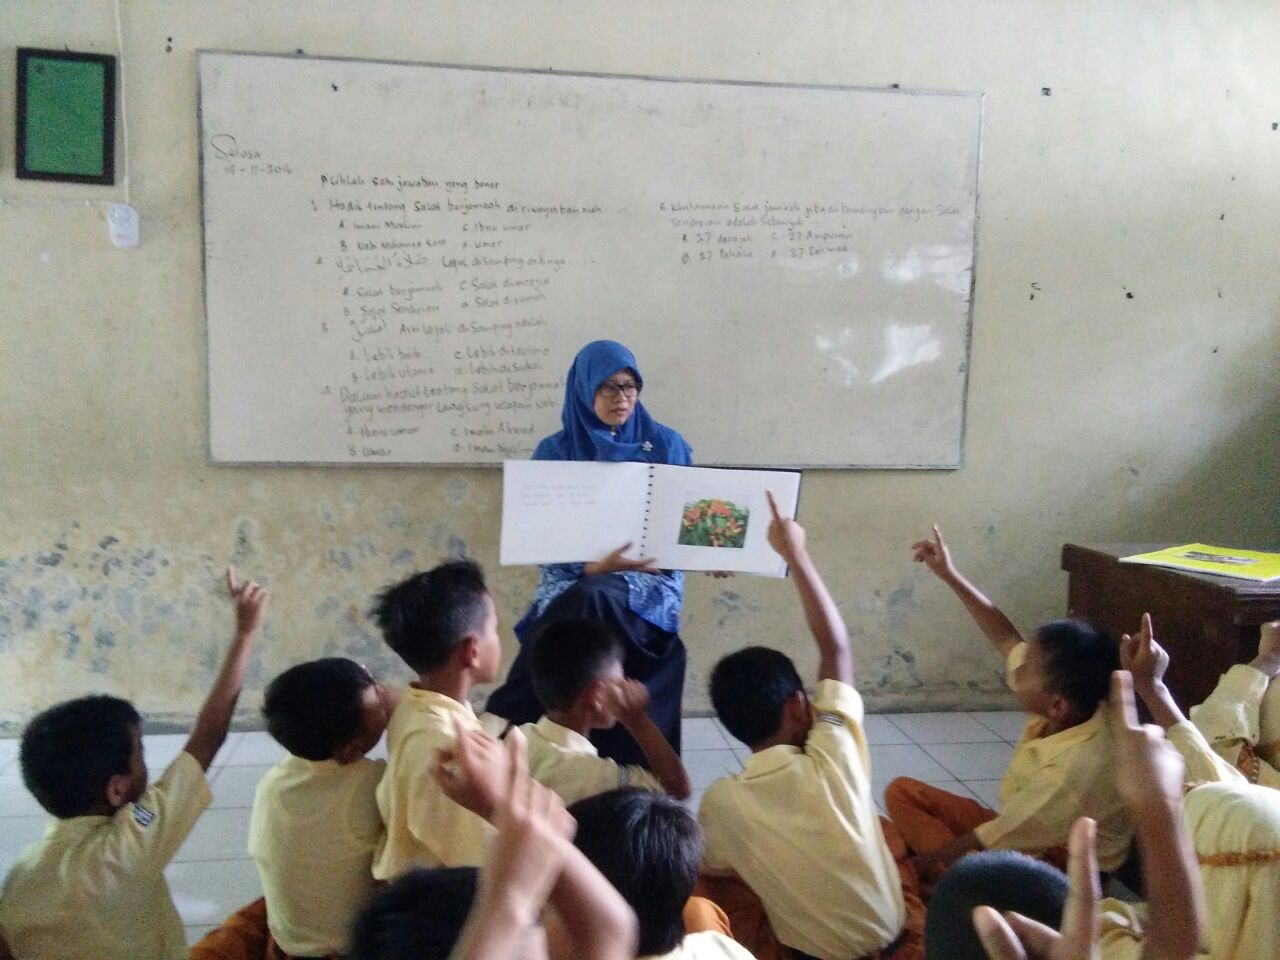 Selasa
15-11-2016
Pilihlah satu jawaban yang benar.
1. Hadis tentang Salat berjamaah diriwayatkan oleh
A. Imam Muslim C. Ibnu umar
B. Nabi Muhamad Saw d. umar
2. صلاة الجماعة Lafal disamping artinya....
A. Salat berjamaah C Salat dimesjid
B. Salat Sendirian d. Salat dirumah
3. افضل Arti Lafal disamping adalah
A. Lebih baik c. Lebih diterima
B. Lebih utama d. Lebih disukai
Dalam hadist tentang Salat berjamaah
yang mendengar langsung ucapan nabi
A. Ibnu umar c. Imam Ahmad
B. Umar d. Imam Muslim
Keutamaan Salat jamaah jika dibandingkan dengan Salat
Sendirian adalah Sebanyak
A. 27 derajat C. 27 Ampunan
B. 27 Pahala d. 27 Rahmad